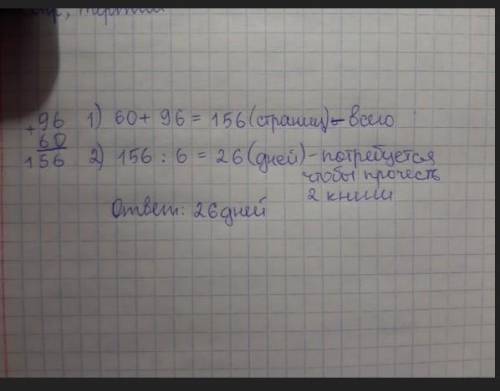 +96
60
156
1) 60 + 96 = 156 (страниц) - всего
2) 156 : 6 = 26 (дней) - потребуется
чтобы прочесть
2 книги
Ответ: 26 дней